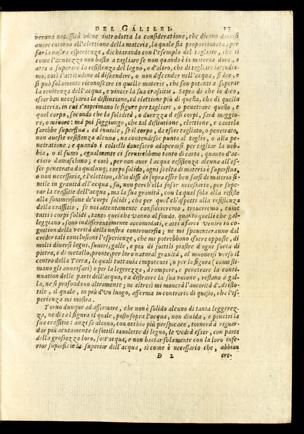 DEL GALILEI. 13
veruna necessità viene introdotta la considerazione, che dicono doversi
auere intorno all'elezione della materia, la quale sia proporzionata, per
far la nostra esperienza, dichiarando con l'esempio del tagliare, che si
come l'acutezza non basta a tagliare se non quando è in materia dura, e
atta a superare la resistenza del legno, o d'altro, che di tagliare intendia-
mo, così l'attitudine al discendere, o non discender nell'acqua, si dee, e
si può solamente riconoscere in quelle materie, che son potenti a superar
la renitenza dell'acqua, e vincer la sua crassizie. Sopra di che io dico,
esser ben necessaria la distinzione, ed elezione più di questa, che di quella
materia, in cui s'imprimano le figure per tagliare, o penetrare questo, o
quel corpo, secondo che la solidità, o durezza di essi corpi, sarà maggio-
re, o minore: ma poi soggiungo, che tal distinzione, elezione, e cautela
sarebbe superflua, ed inutile, se il corpo, da esser tagliato, o penetrato,
non auesse resistenza alcuna, nè contendesse punto al taglio, o alla pe-
netrazione: e quando i coltelli douessero adoperarsi per tagliar la neb-
bia, o il fumo, egualmente ci seruirebbono tanto di carta, quanto d'ac-
ciaio damaschino; e così, per non auer l'acqua resistenza alcuna all'es-
ser penetrata da qualunque corpo solido, ogni scelta di materia è superflua,
o non necessaria, e l'elezion, ch'io dissi di sopra esser ben farsi di materia si-
mile in grauità all'acqua, fu, non perch'ella fosse necessaria, per supe-
rar la crassizie dell'acqua, ma la sua grauità, con la qual sola ella resiste
alla sommersione de' corpi solidi, che per quel ch'aspetti alla resistenza
della crassizie, se noi attentamente considereremo, troueremo, come
tutti i corpi solidi, tanto quei che vanno al fondo, quanto quelli che gal-
leggiano, sono indifferentemente accomodati, e atti a farci venire in co-
gnizion della verità della nostra controuersia; nè mi spauenteranno dal
creder tali conclusioni l'esperienze, che mi potrebbono essere opposte, di
molti diuersi legni, suueri, galle, e più di sottili piastre d'ogni sorta di
pietra, e di metallo, pronte, per loro natural grauità, al muouersi verso il
centro della Terra, le quali tuttauia impotente, o per la figura (come sti-
mano gli auuersari) o per la leggerezza, a rompere, e penetrare la conti-
nuazion delle parti dell'acqua, e a distrarre la sua vnione, restano a gal-
la, nè si profondano altramente; nè altresì mi mouerà l'autorità d'Aristo-
tile, il quale, in più d'un luogo, afferma in contrario di quello, che l'es-
perienza mi mostra.
Torno dunque ad affermare, che non è solido alcuno di tanta leggerez-
za, nè di tal figura il quale, posto sopra l'acqua, non diuida, e penetri la
sua crassizie: anzi se alcuno, con occhio più perspicace, tornerà a riguar-
dar più acutamente le sottili tauolette di legno, le vedrà esser, con parte
della grossezza loro, sott'acqua, e non baciar solamente con la loro infe-
rior superficie la superior dell'acqua, sì come è necessario che, abbian
D 2 cre-